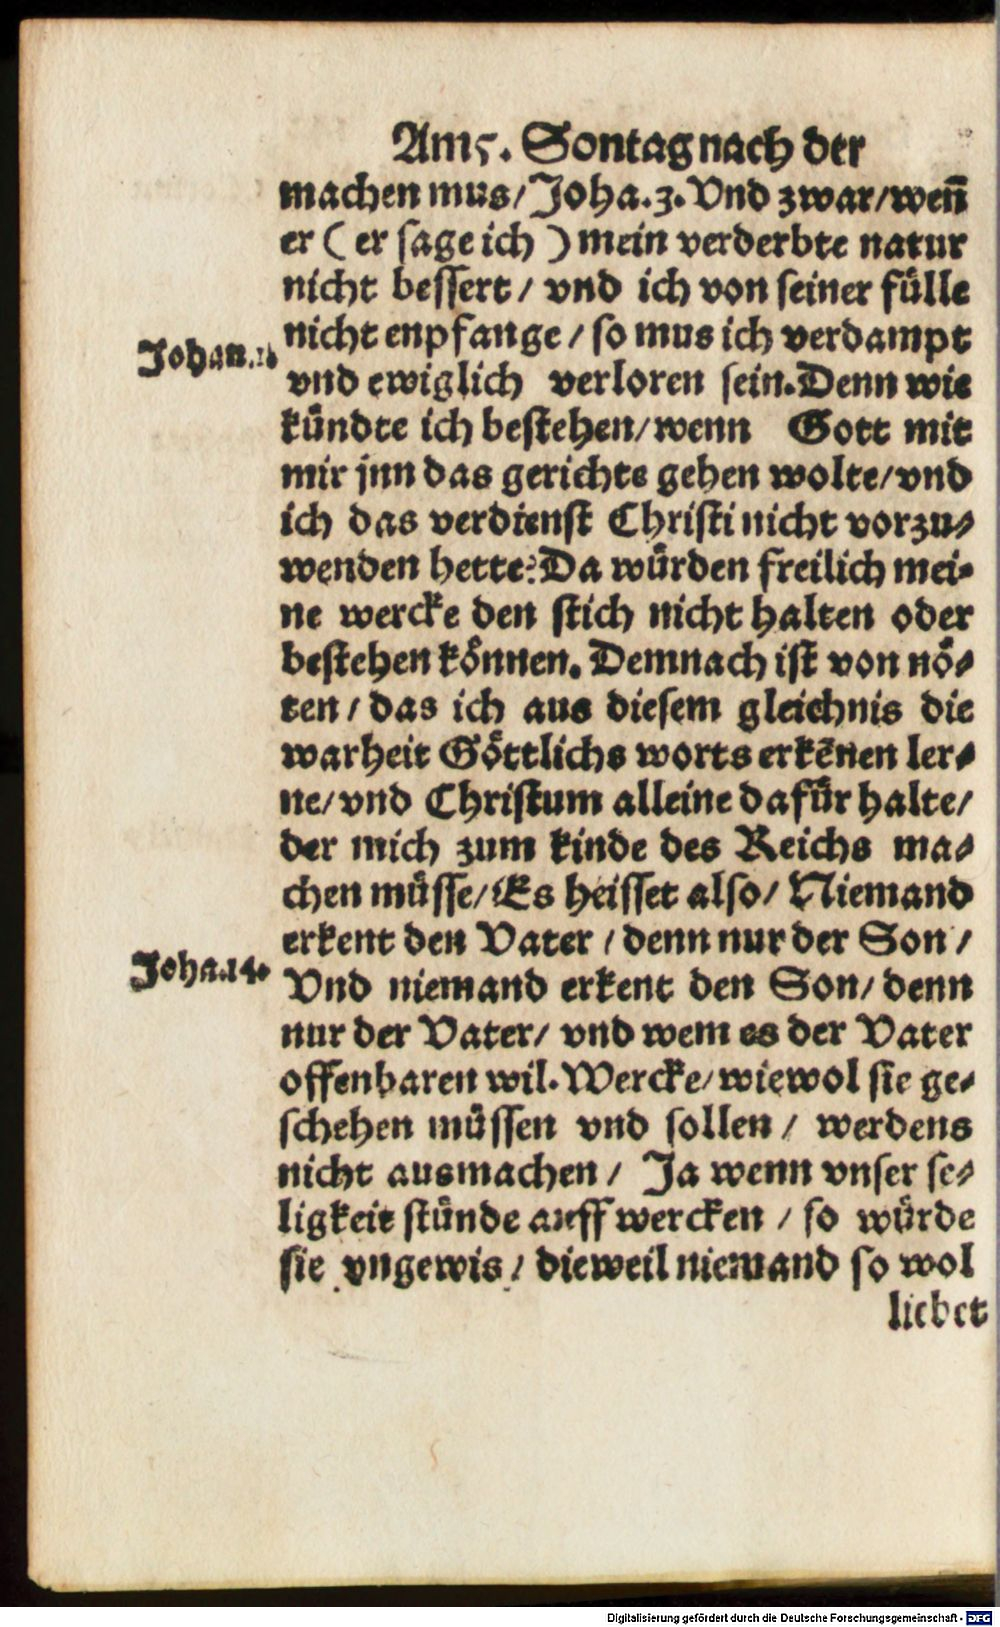 Am 5. Sontag nach der
machen mus/ Joha. 3. Vnd zwar/ weñ
er ( er sage ich ) mein verderbte natur
nicht bessert/ vnd ich von seiner fülle
nicht enpfange/ so mus ich verdampt
Johan.
vnd ewiglich verloren sein. Denn wie
kündte ich bestehen/ wenn Gott mit
mir jnn das gerichte gehen wolte/ vnd
ich das verdienst Christi nicht vorzu⸗
wenden hette? Da würden freilich mei⸗
ne wercke den stich nicht halten oder
bestehen können. Demnach ist von nö⸗
ten/ das ich aus diesem gleichnis die
warheit Göttlichs worts erkēnen ler⸗
ne/ vnd Christum alleine dafür halte/
der mich zum kinde des Reichs ma⸗
chen müsse/ Es heisset also/ Niemand
erkent den Vater/ denn nur der Son/
Joha. 14.
Vnd niemand erkent den Son/ denn
nur der Vater/ vnd wem es der Vater
offenbaren wil. Wercke/ wiewol sie ge⸗
schehen müssen vnd sollen/ werdens
nicht ausmachen/ Ja wenn vnser se⸗
ligkeit stünde auff wercken/ so würde
sie vngewis/ dieweil niemand so wol
liebet
Digitalisierung gefördert durch die Deutsche Forschungsgemeinschaft - DFG